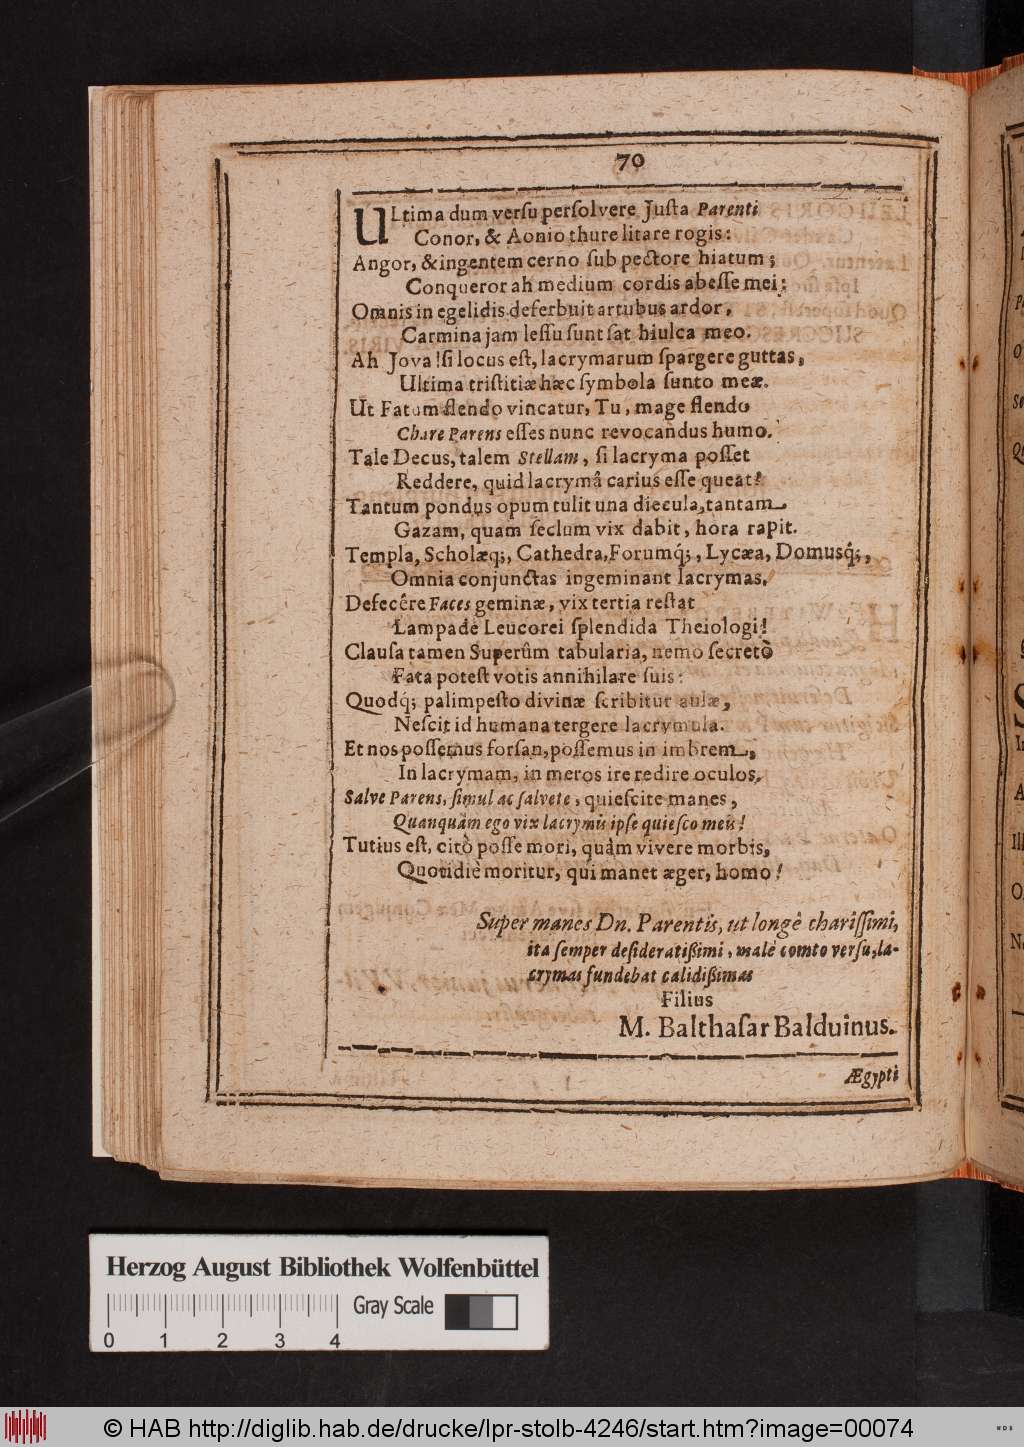 70
ULtima dum verſu perſolvere Juſta Parenti
Conor, & Aonio thure litare rogis:
Angor, & ingentem cerno ſub pectore hiatum;
Conqueror ah medium cordis abeſſe mei;
Omnis in egelidis deferbuit artubus ardor,
Carmina jam leſſu ſunt ſat hiulca meo.
Ah Jova! ſi locus eſt, lacrymarum ſpargere guttas,
Ultima triſtitiæ hæc ſymbola ſunto meæ.
Ut Fatum flendo vincatur, Tu, mage flendo
Chare Parens eſſes nunc revocandus humo.
Tale Decus, talem Stellam, ſi lacryma poſſet
Reddere, quid lacrymâ carius eſſe queat?
Tantum pondus opum tulit una diecula, tantam
Gazam, quam ſeclum vix dabit, hora rapit.
Templa, Scholæq́;, Cathedra, Forumq́;, Lycæa, Domusq́;,
Omnia conjunctas ingeminant lacrymas.
Defecêre Faces geminæ, vix tertia reſtat
Lampade Leucorei ſplendida Theiologi!
Clauſa tamen Superûm tabularia, nemo ſecretò
Fata poteſt votis annihilare ſuis:
Quodq́; palimpeſto divinæ ſcribitur aulæ,
Neſcit id humana tergere lacrymula.
Et nos poſſemus forſan, poſſemus in imbrem,
In lacrymam, in meros ire redire oculos.
Salve Parens, ſimul ac ſalvete, quieſcite manes,
Quanquàm ego vix lacrymis ipſe quieſco meis!
Tutius eſt, citò poſſe mori, quàm vivere morbis,
Quotidiè moritur, qui manet æger, homo!
Super manes Dn. Parentis, ut longè chariſſimi,
ita ſemper deſideratißimi, malè comto verſu, la-
crymas fundebat calidißimas
Filius
M. Balthaſar Balduinus.
Ægypti
Herzog August Bibliothek Wolfenbüttel
Gray Scale
0 1 2 3 4
© HAB http://diglib.hab.de/drucke/lpr-stolb-4246/start.htm?image=00074